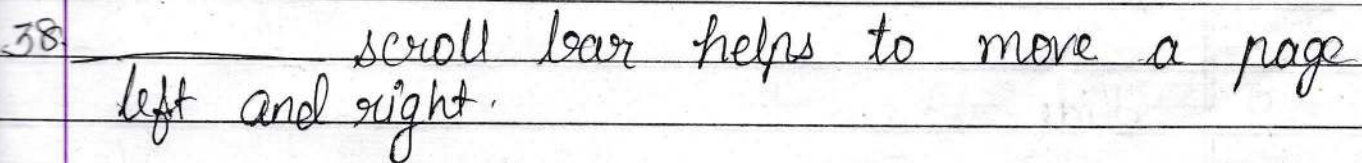 38. ________ scroll bar helps to move a page
left and right.